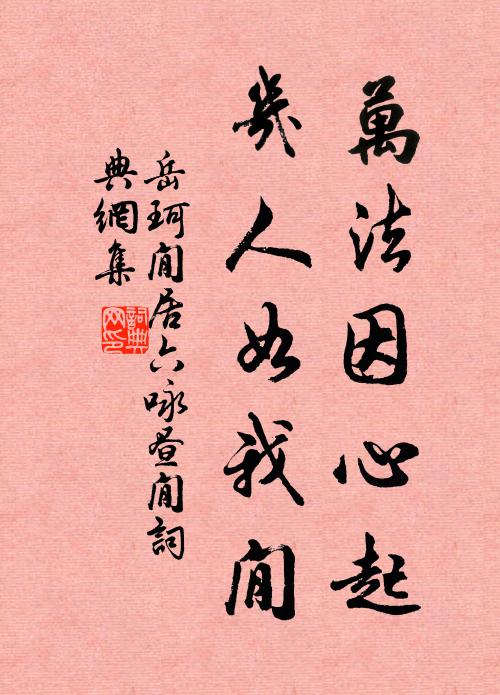 萬法因心起
幾人如我閒
岳珂閒居六咏晝閒詞
典網集
詞典網印